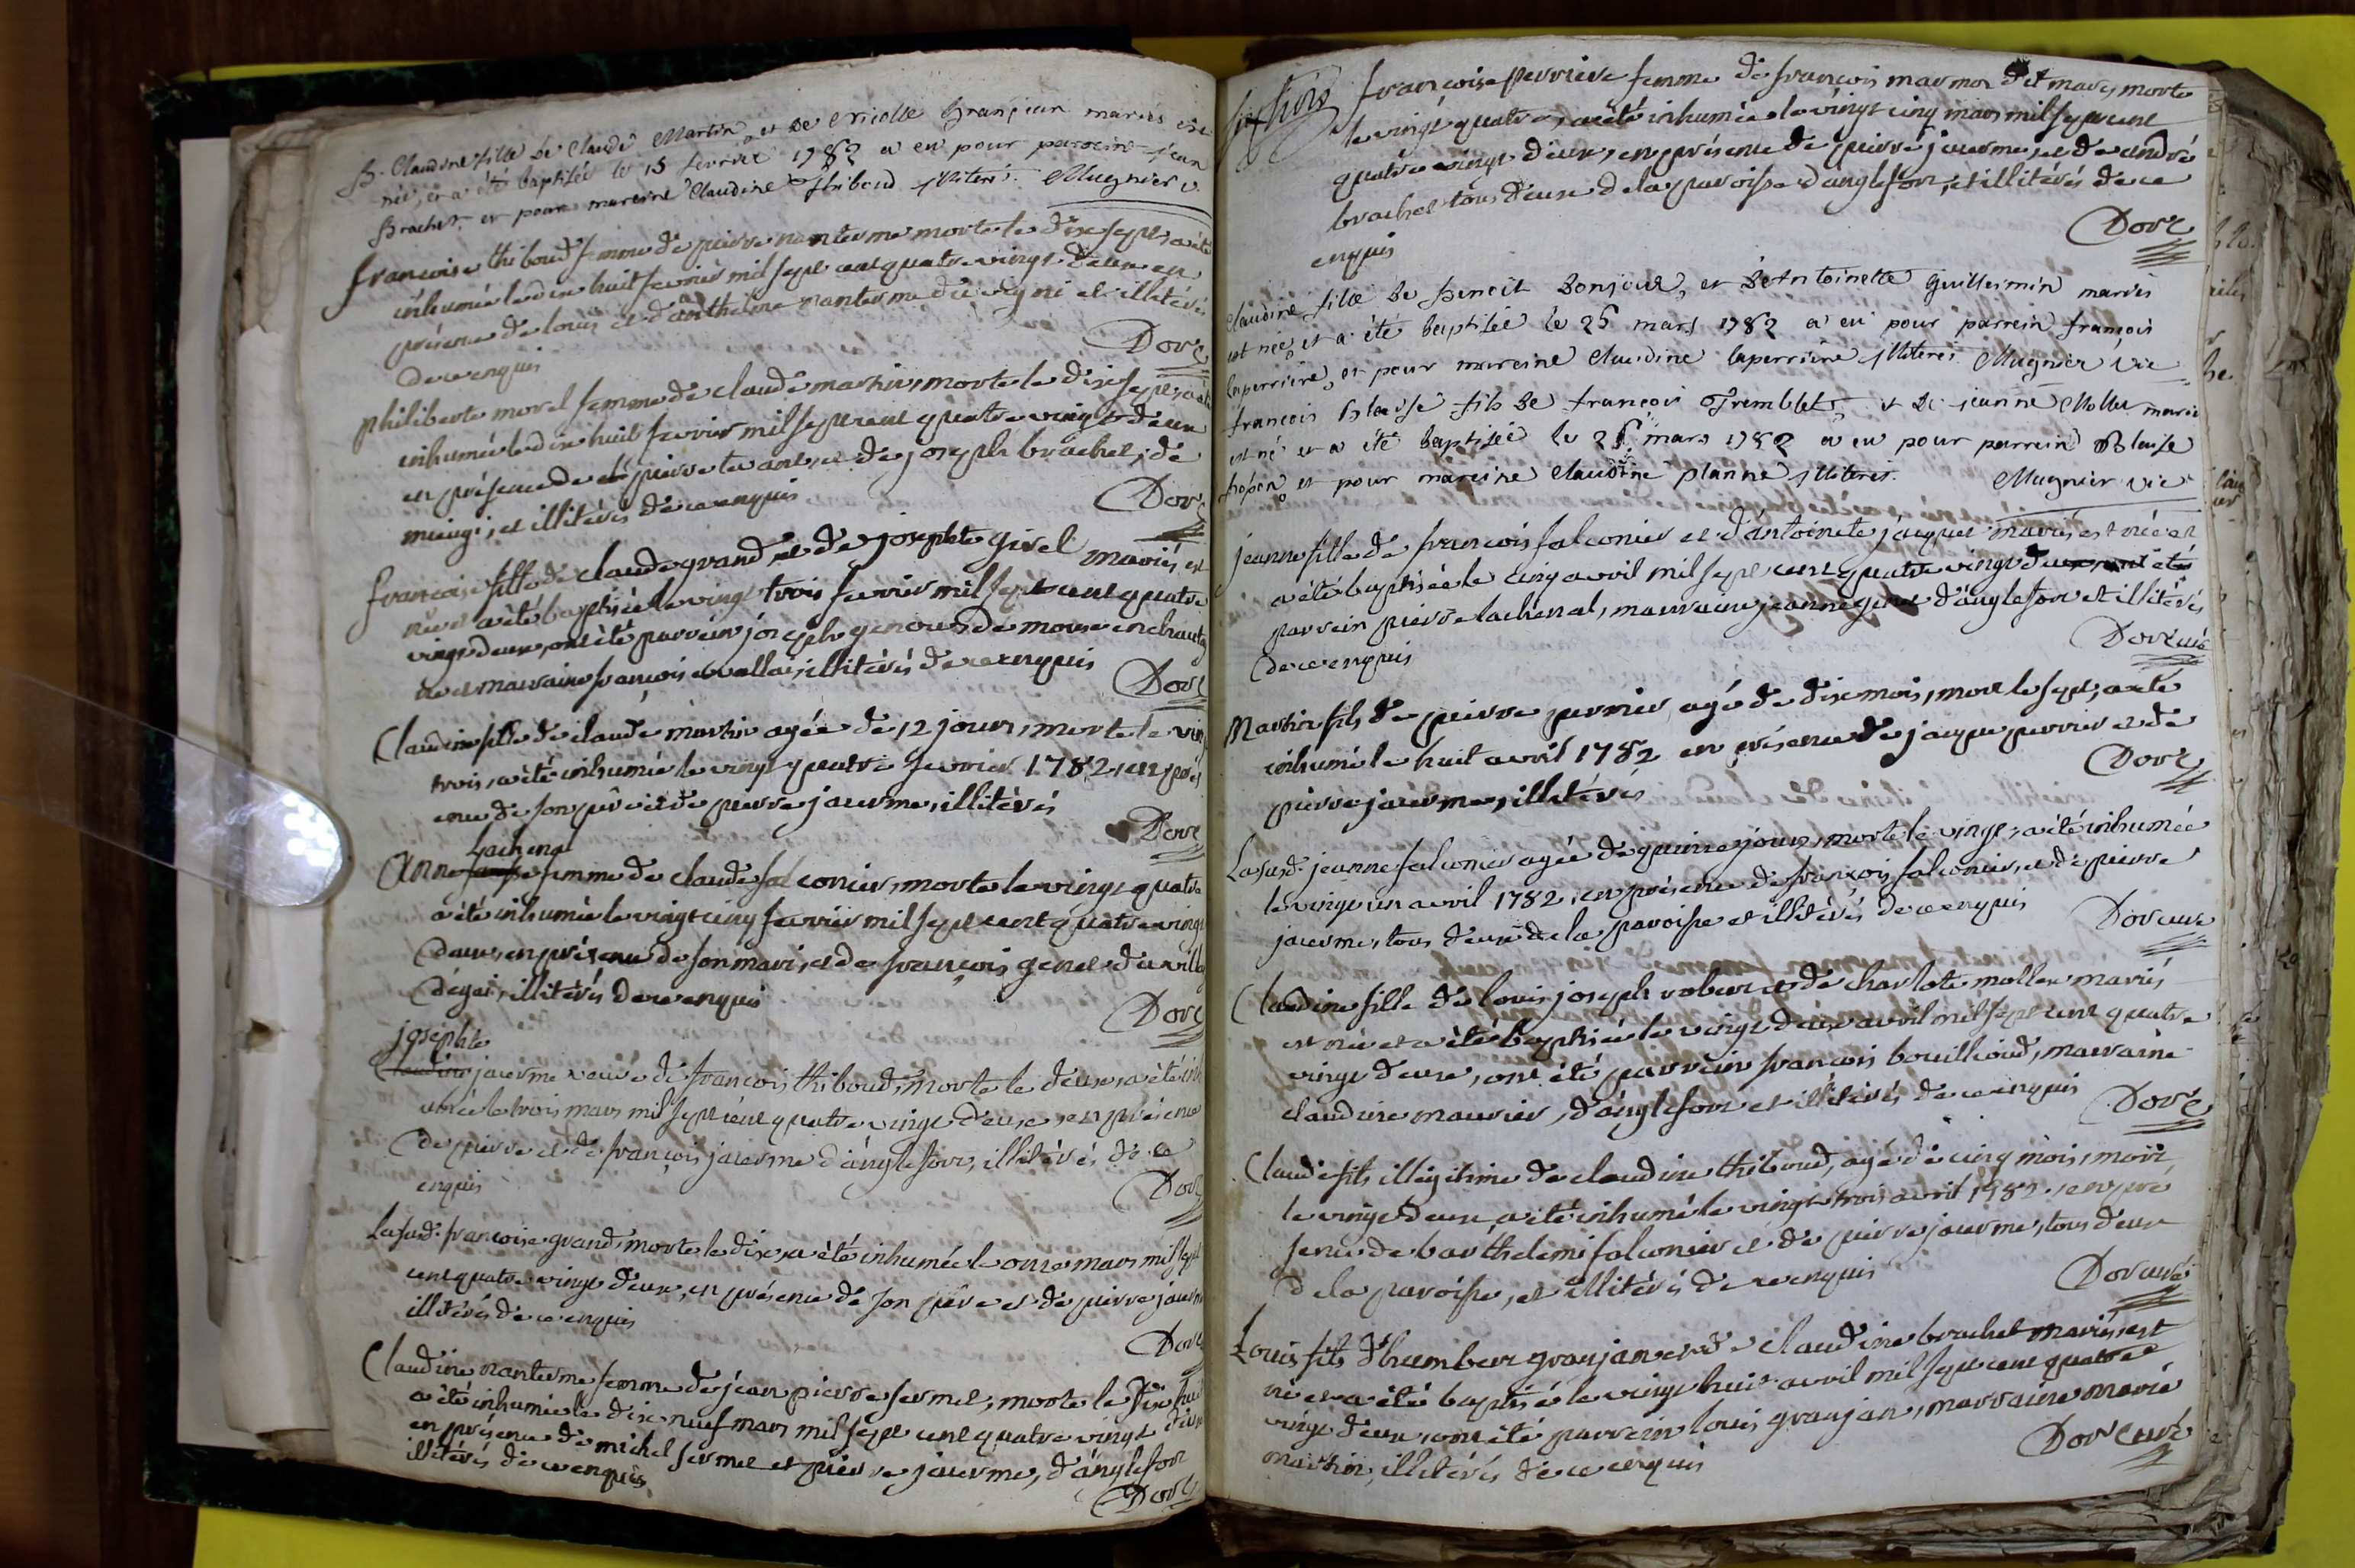 B. Claudine fille de Claude Martin et de Nicolle Granjean mariés est
née, et a été baptisée le 15 fevrier 1782 a eu pour parrein jean
Brachet et pour mareine Claudine Thiboud illiterés. Mugnier v.
francoise thiboud femme de pierre nanterme morte le dix sept, a été
inhumée le dix huit fevrier mil sept cent quatre vingt deux en
présence de louis et d'anthelme nanterme et illitérés
de ce enquis
Dorc
philiberte morel femme de claude martin, morte le dix sept, a été
inhumée le dix huit fevrier mil sept cent quatre vingt deux
en présence de pierre et de joseph brachet, de
et illitérés de ce enquis
Dorc
francoise fille de claude grand et de josephte girel mariés est
née et a été baptisée le vingt trois fevrier mil sept cent quatre
vingt deux, ont été parrein joseph de
et marraine françois illitérés de ce enquis
Dorc
Claudine fille de claude martin agée de 12 jours, morte le vingt
trois, a été inhumée le vingt quatre fevrier 1782, en prés
ence de son père et de pierre jacerme, illitérés
Dorc
Lachenal
Anne femme de claude falconier, morte le vingt quatre
a été inhumée le vingt cinq fevrier mil sept cent quatre vingt
deux, en présence de son mari, et de françois genet
illitérés de ce enquis
Dorc
josephte
claudine jacerme veuve de françois thiboud, morte le deux, a été inh
umée le trois mars mil sept cent quatre vingt deux, en présence
de pierre et de françois jacerme d'anglefort, illitérés de ce
enquis
Dorc
La susd. francoise grand, morte le dix, a été inhumée le onze mars mil sept
cent quatre vingt deux, en présence de son père et de pierre jacerme
illitérés de ce enquis
Dorc
Claudine nanterme femme de jean pierre fermet, morte le dix huit
a été inhumée le dix neuf mars mil sept cent quatre vingt deux
en présence de michel fermet et pierre jacerme, d'anglefort
illitérés de ce enquis
Dorc
francoise perriere femme de françois marmor dit mares, morte
le vingt quatre, a été inhumée le vingt cinq mars mil sept cent
quatre vingt deux, en présence de pierre jacerme, et de andré
brachet tous deux de la paroisse d'anglefort, et illitérés de ce
enquis
Dorc
Claudine fille de Benoit Bonjour, et de Antoinette Guillermin mariés
est née et a été baptisée le 25 mars 1782 a eu pour parrein françois
laperriere, et pour mareine Claudine laperriere illiterés. Mugnier vic
françois Blaise fils de françois Tremblet, et de jeanne Mollex mariés
est né et a été baptisé le 25 mars 1782 a eu pour parrein Blaise
et pour mareine Claudine Planne illiterés. Mugnier vic
jeanne fille de francois falconier et d'antoinete jacques mariés est née et
a été baptisée le cinq avril mil sept cent quatre vingt deux, ont été
parrein pierre lachenal, marraine jeanne genet d'anglefort et illitérés
de ce enquis
Dorc curé
Martin fils de pierre perrier, agé de dix mois, mort le sept, a été
inhumé le huit avril 1782 en présence de jacque perrier et de
pierre jacerme, illitérés
Dorc
La susd. jeanne falconier agée de quinze jours, morte le vingt, a été inhumée
le vingt un avril 1782, en présence de françois falconier, et de pierre
jacerme, tous deux de la paroisse et illitérés de ce enquis
Dorc curé
Claudine fille de louis joseph robert et de charlote mollex mariés
est née et a été baptisée le vingt deux avril mil sept cent quatre
vingt deux, ont été parrein francois bouilloud, marraine
claudine maurier, d'anglefort et illitérés de ce enquis
Dorc
Claude fils illégitime de claudine thiboud, agé de cinq mois, mort
le vingt deux, a été inhumé le vingt trois avril 1782, en pré
sence de barthelemi falconier et de pierre jacerme, tous deux
de la paroisse, et illitérés de ce enquis
Dorc curé
Louis fils d'humbert granjan et de claudine brachet mariés est
né et a été baptisé le vingt huit avril mil sept cent quatre
vingt deux, ont été parrein louis granjan, marraine marie
martin, illitérés de ce enquis
Dorc curé